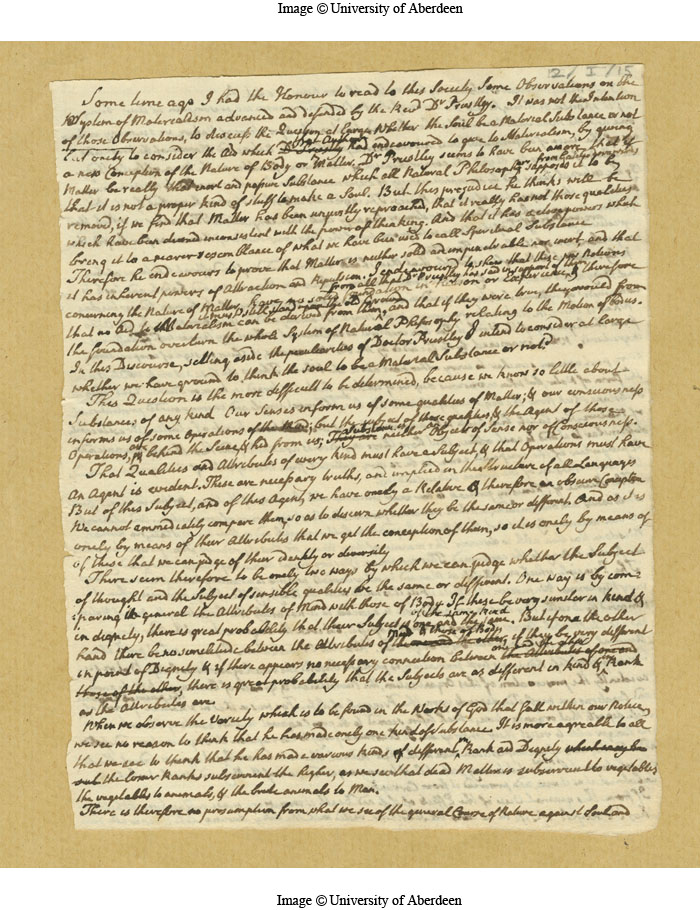 Image © University of Aberdeen
2/I/15
Some time ago I had the Honour to read to this Society Some Observations on the
System of Materialism advanced and defended by the Revd Dr Priestley. It was not the Intention
of those Observations, to discuss the Question at large Whether the Soul be a Material Substance or not
but onely to consider the Aid which that Author had endeavoured to give to Materialism, by giving
a new Conception of the Nature of Body or Matter. Dr Priestley seems to have been aware that if
Matter be really that inert and passive Substance which all Natural Philosophers supposed it to be
that it is not a proper kind of stuff to make a Soul. But this prejudice he thinks will be
removd, if we find that Matter has been unjustly reproached, that it really has not those qualities
which have been deemd inconsistent with the power of thinking. And that it has others which
bring it to a nearer resemblance of what we have been used to call Spiritual Substance
Therefore he endeavours to prove that Matter is neither solid nor impenetrable nor inert; and that
it has inherent powers of Attraction and Repulsion. I endeavoured to shew that these new Notions
concerning the Nature of Matter, have no solid foundation in Reason or Experience, & therefore
from all that Dr Priestley has said in support of them
must still stand upon its old ground
that no Aid to Materialism can be derived from them; and that if they were true, they would from
the foundation overturn the whole System of Natural Philosophy relating to the Motion of Bodies.
In this Discourse, setting aside the peculiarities of Doctor Priestley I intend to consider at large
whether we have ground to think the soul to be a Material Substance or not?
This Question is the more difficult to be determined, because we know so little about
Substances of any kind. Our Senses inform us of some qualities of Matter; & our consciousness
informs us of some Operations of the Mind; but the Subject of those qualities & the Agent of those
Operations, are behind the Scene & hid from us; They are neither Object of Sense nor of Consciousness.
That Qualities and Attributes of every kind must have a Subject, & that Operations must have
An Agent is evident. These are necessary truths, and implied in the structure of all Languages
But of this Subject, and of this Agent, we have onely a Relative & therefore an obscure Conception
We cannot immediately compare them, so as to discern whether they be the same or different. And as it is
onely by means of their Attributes that we get the conception of them, so it is onely by means of
of these that we can judge of their identity or diversity
There seem therefore to be onely two ways by which we can judge whether the Subject
of thought and the Subject of sensible qualities be the same or different. One way is by com=
paring in general the Attributes of Mind with those of Body. If these be very similar in kind &
in dignity, there is great probability that their Subject is one and the same. But if on the other
of the same kind
hand there be no similitude between the Attributes of the one and the other, if they be very different
Mind & those of Body
in point of Dignity & if there appears no necessary connection between the Attributes of one and
one and the other
those of the other, there is great probability that the Subjects are as different in kind & Rank
as the Attributes are.
When we observe the Variety which is to be found in the Works of God that fall within our Notice,
we see no reason to think that he has made onely one kind of Substance. It is more agreable to all
that we see to think that he has made various kinds of different Rank and Dignity
the lower Ranks subservient the higher, as we see that dead Matter is subservient to vegetables,
the vegetables to animals, & the brute animals to Man.
There is therefore no presumption from what we see of the general Course of Nature against Soul and
Image © University of Aberdeen